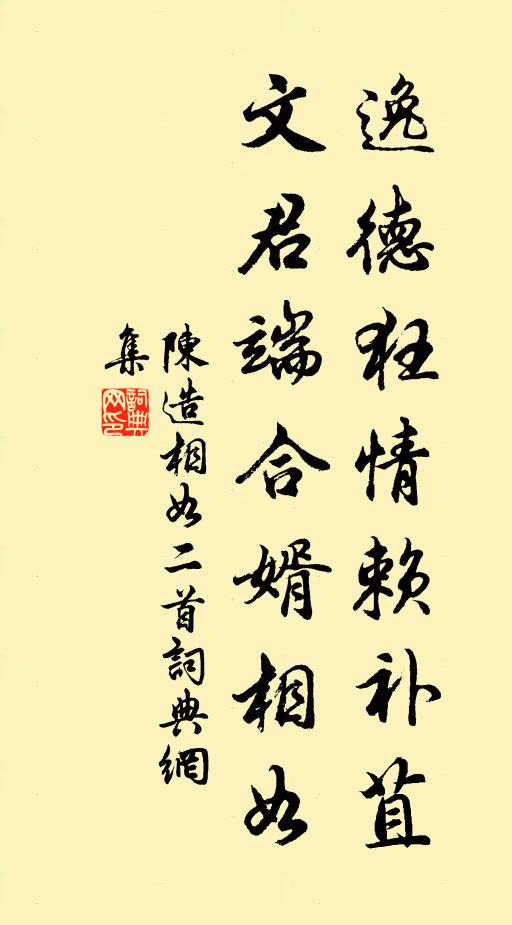 逸德狂情賴补苴
文君端合婿相如
陳造相如二首詞典網
集
詞典
网印